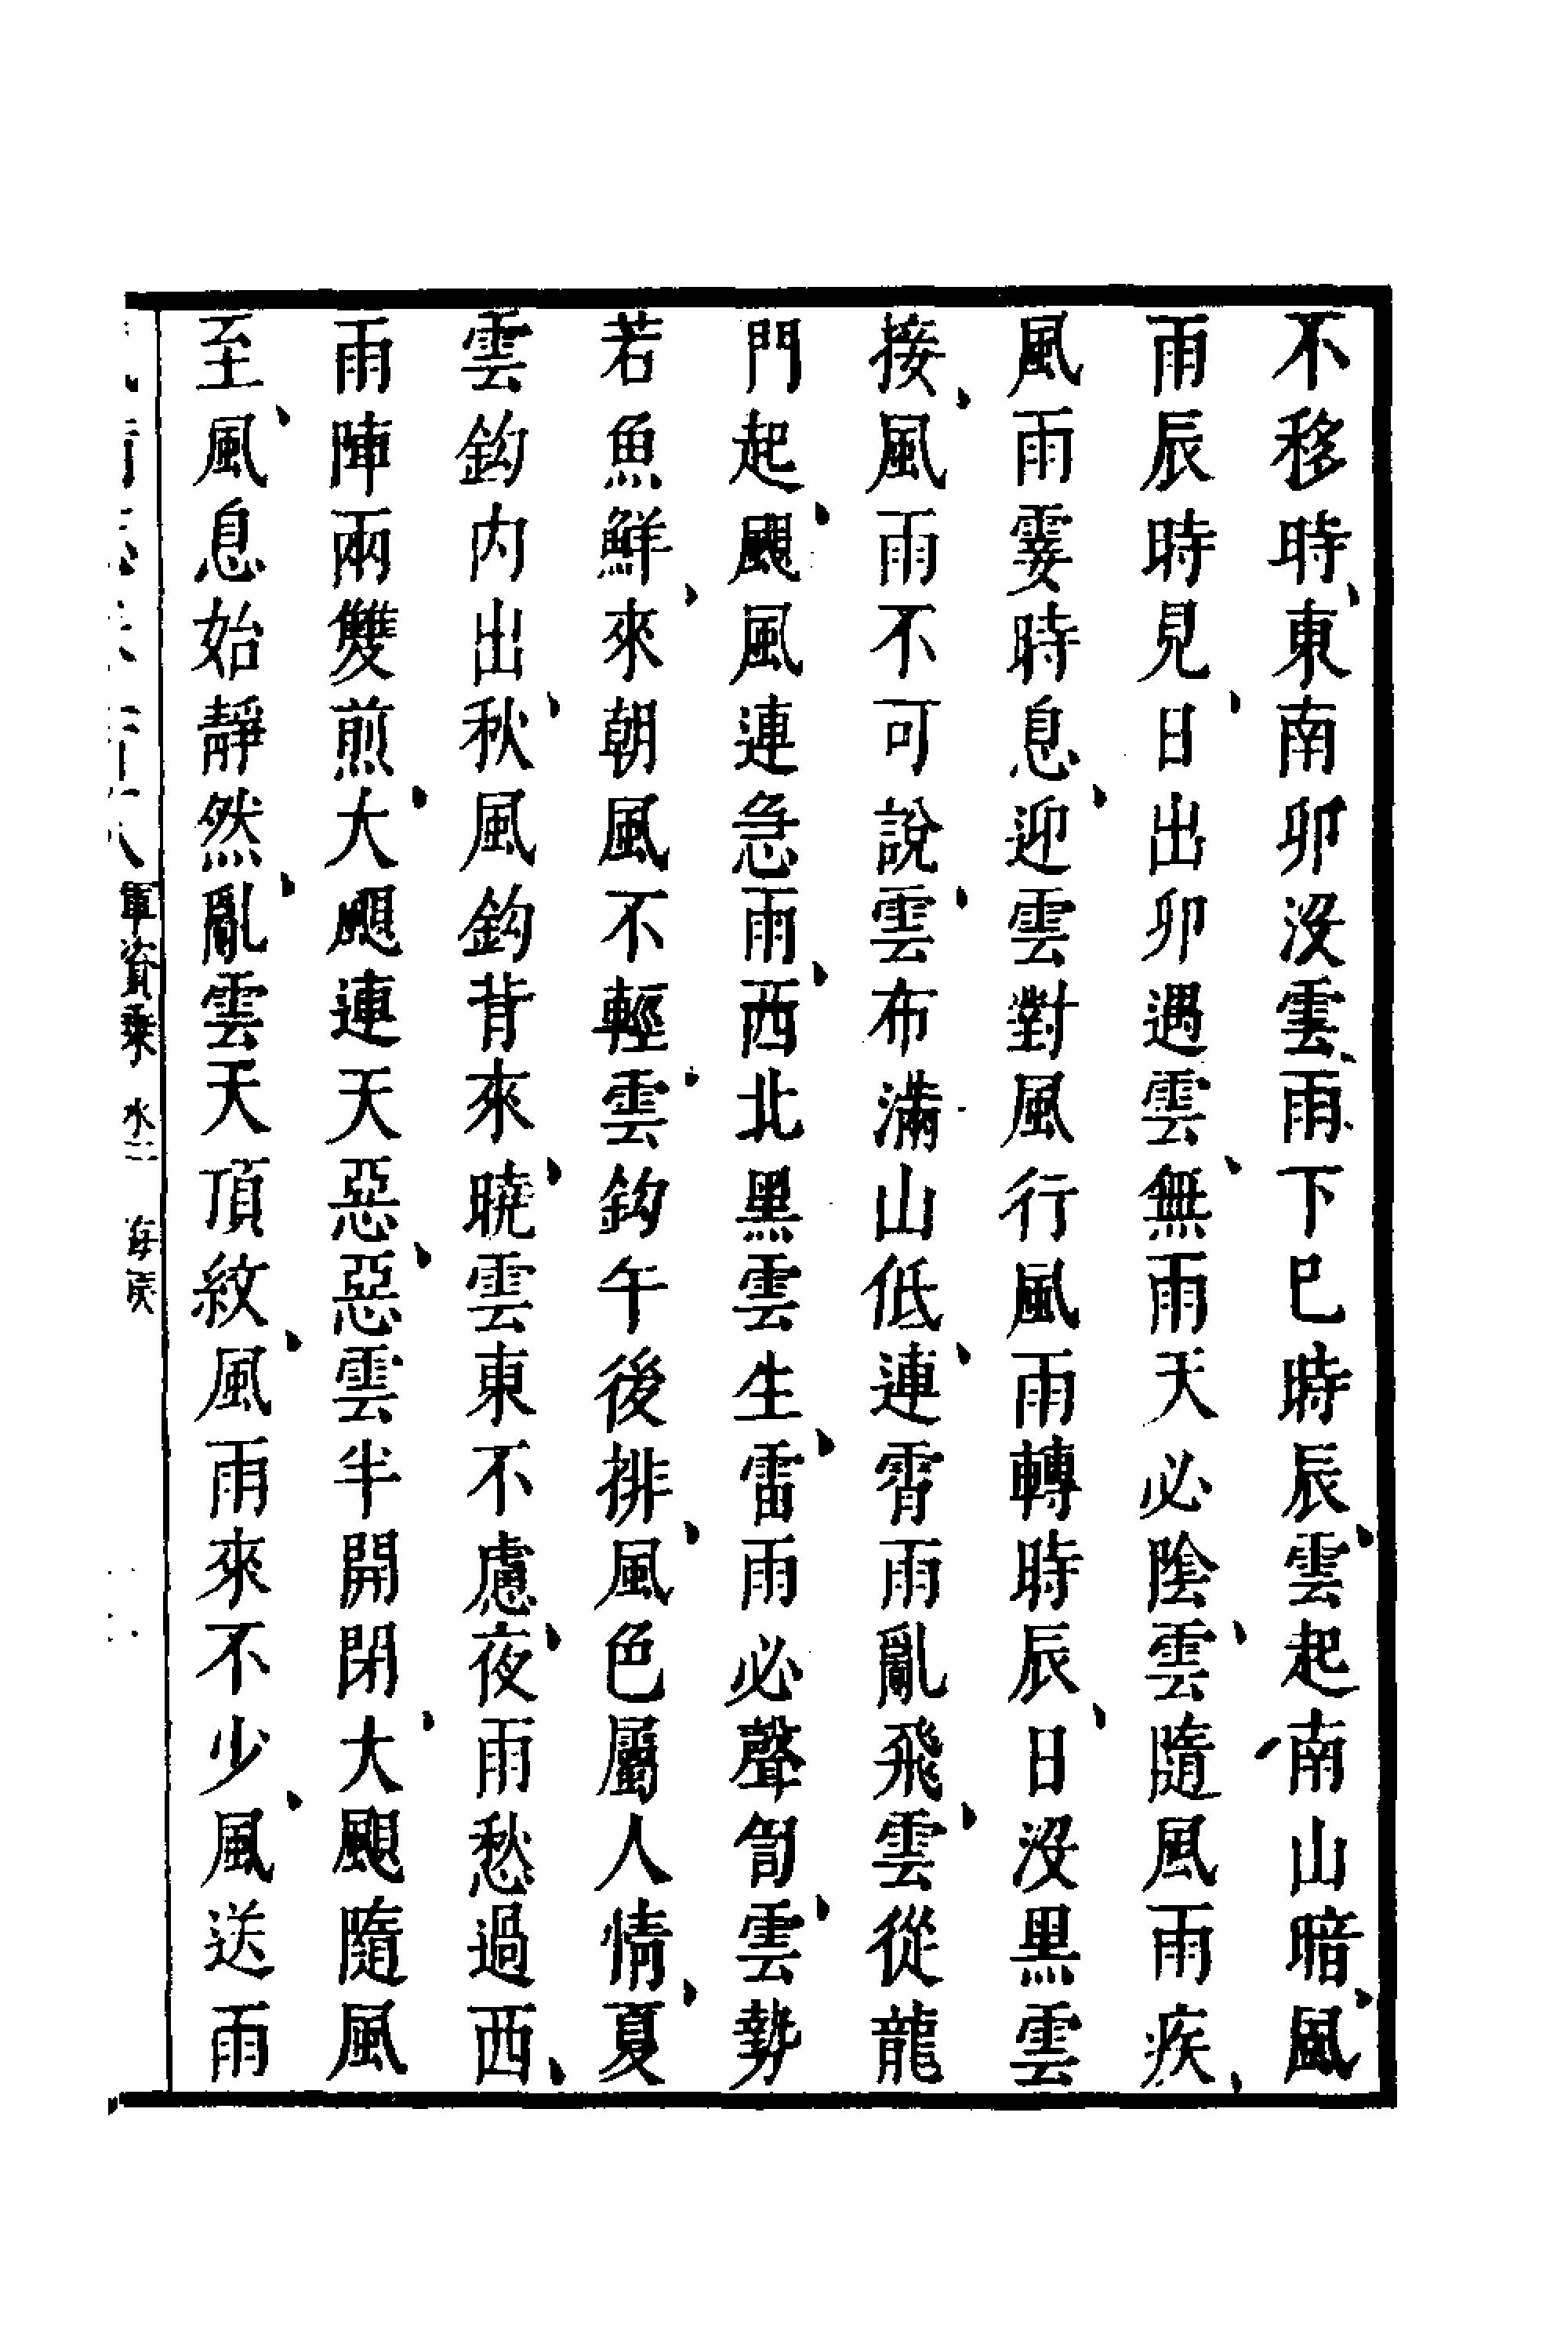 不移時東南卯沒雲雨下巳時辰雲起南山暗風
雨辰時見日出卯遇雲無雨天必陰雲隨風雨疾
風雨霎時息迎雲對風行風雨轉時辰日沒黑雲
接風雨不可說雲布滿山低連霄雨亂飛雲從龍
門起颶風連急雨西北黑雲生雷雨必聲訇雲勢
若魚鮮來朝風不輕雲鈎午後排風色屬人情夏
雲鈎内出秋風鈎背來曉雲東不慮夜雨愁過西
雨陣兩雙煎大颶連天惡惡雲半開閉大颶隨風
至風息始靜然亂雲天頂紋風雨來不少風送雨
軍資乘 水二 海